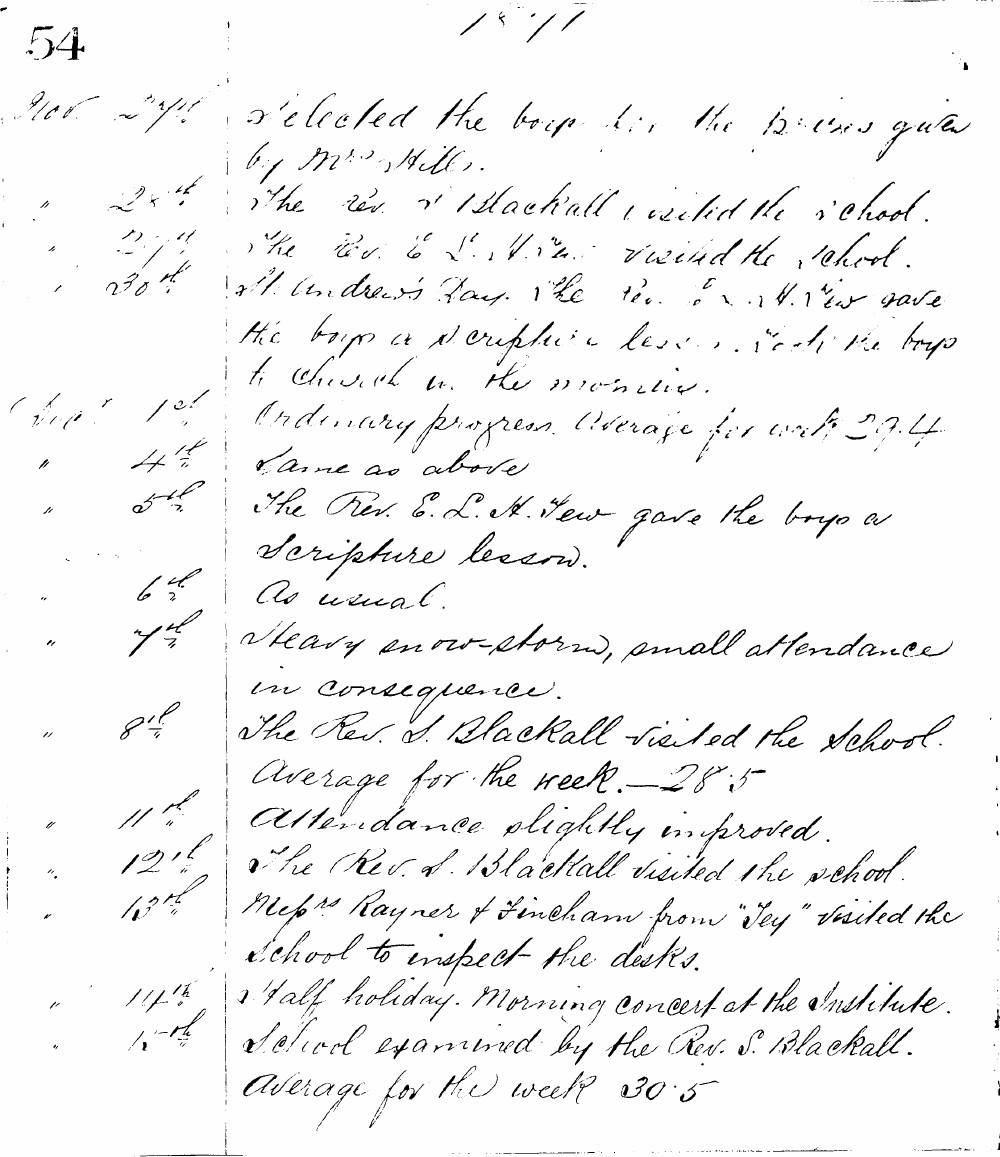 54
1871
Nov. 27th Selected the boys for the Prizes given
by Mrs Hills.
" 28th The Rev. S Blackall visited the School.
" 29th The Rev. E. L. H. Tew visited the School.
" 30th St. Andrew's Day. The Rev. E. L. H. Tew gave
the boys a Scripture lesson. Took the boys
to Church in the morning.
1st Ordinary progress. Average for week 29.4
" 4th Same as above
" 5th The Rev. E. L. H. Tew gave the boys a
Scripture lesson.
" 6th As usual.
" 7th Heavy snow-storm, small attendance
in consequence.
" 8th The Rev. S. Blackall visited the School.
Average for the week. — 28.5
" 11th Attendance slightly improved.
" 12th The Rev. S. Blackall visited the school.
" 13th Messrs Rayner & Fincham from "Tey" visited the
School to inspect the desks.
" 14th Half holiday. Morning concert at the Institute.
" 15th School examined by the Rev. S. Blackall.
Average for the week 30.5